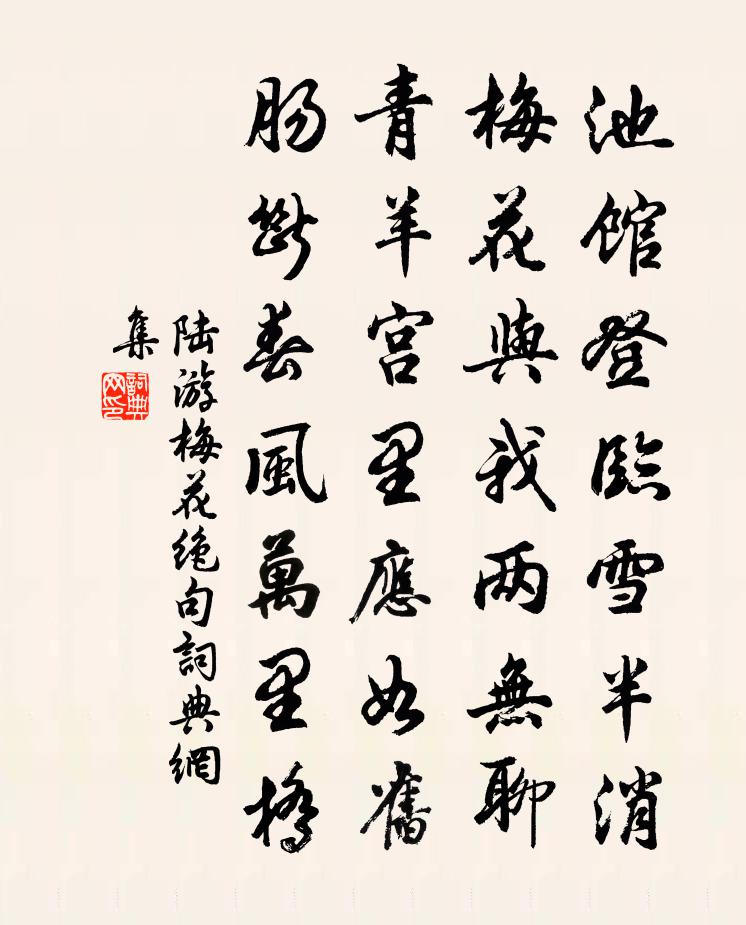 池館登臨雪半消
梅花與我两無聊
青羊宫里應如舊
肠斷春風萬里橋
陆游梅花绝句詞典網
集
詞典
网印